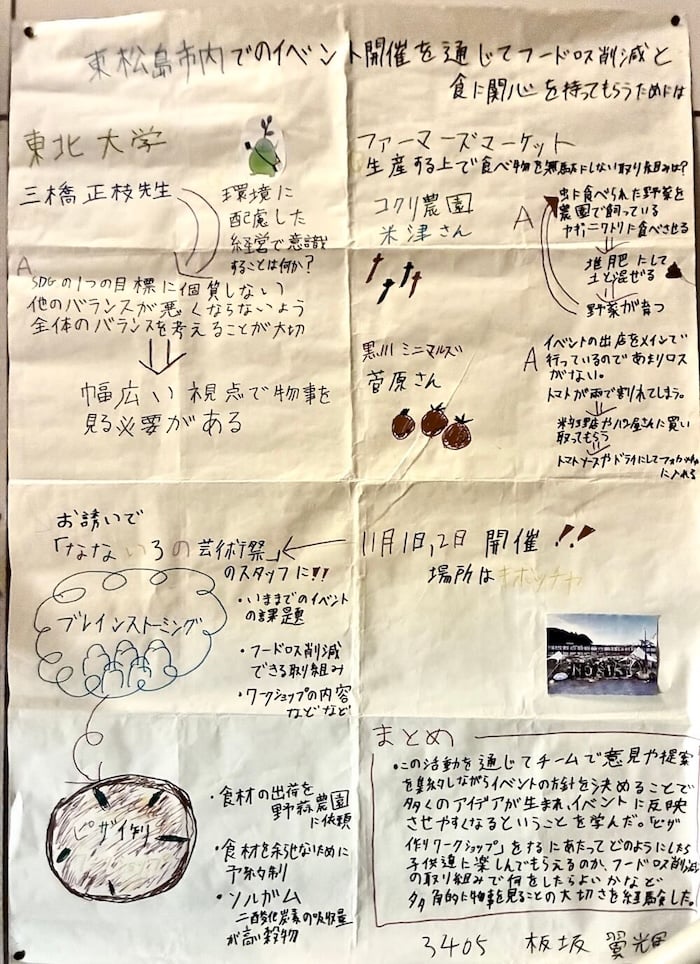 東松島市内でのイベント開催を通じてフードロス削減と
食に関心を持ってもらうためには
東北大学
三橋正枝先生
環境に
配慮した
経営で意識
することは何か?
A
SDGの1つの目標に個質しない
他のバランスが悪くならないよう
全体のバランスを考えることが大切
幅広い視点で物事を
見る必要がある
ファーマーズマーケット
生産する上で食べ物を無駄にしない取り組みは?
コクリ農園
米津さん
A
虫に食べられた野菜を
農園で飼っている
ヤギ、ニワトリに食べさせる
堆肥にして
土と混ぜる
野菜が育つ
黒川ミニマルズ
菅原さん
A
イベントの出店をメインで
行っているのであまりロス
がない。
トマトが雨で割れてしまう。
やパン屋さんに買い
取ってもらう
トマトソースやドライにしてフォカッチャ
に入れる
お誘いで
「なないろの芸術祭」
のスタッフに!!
11月1日,2日 開催!!
場所はキボッチャ
ブレインストーミング
・いままでのイベント
の課題
・フードロス削減
できる取り組み
・ワークショップの内容
などなど
NOBIRU
ピザ作り
・食材の出荷を
野蒜農園
に依頼
・食材を余らせないために
予約制
・ソルガム
二酸化炭素の吸収量
が高い穀物
まとめ
・この活動を通じてチームで意見や提案
を集約しながらイベントの方針を決めることで
多くのアイデアが生まれ、イベントに反映
させやすくなるということを学んだ。「ピザ
作りワークショップ」をするにあたってどのようにしたら
子供達に楽しんでもらえるのか、フードロス削減
の取り組みで何をしたらよいかなど
多角的に物事を見ることの大切さを経験した。
3405 板坂 翼